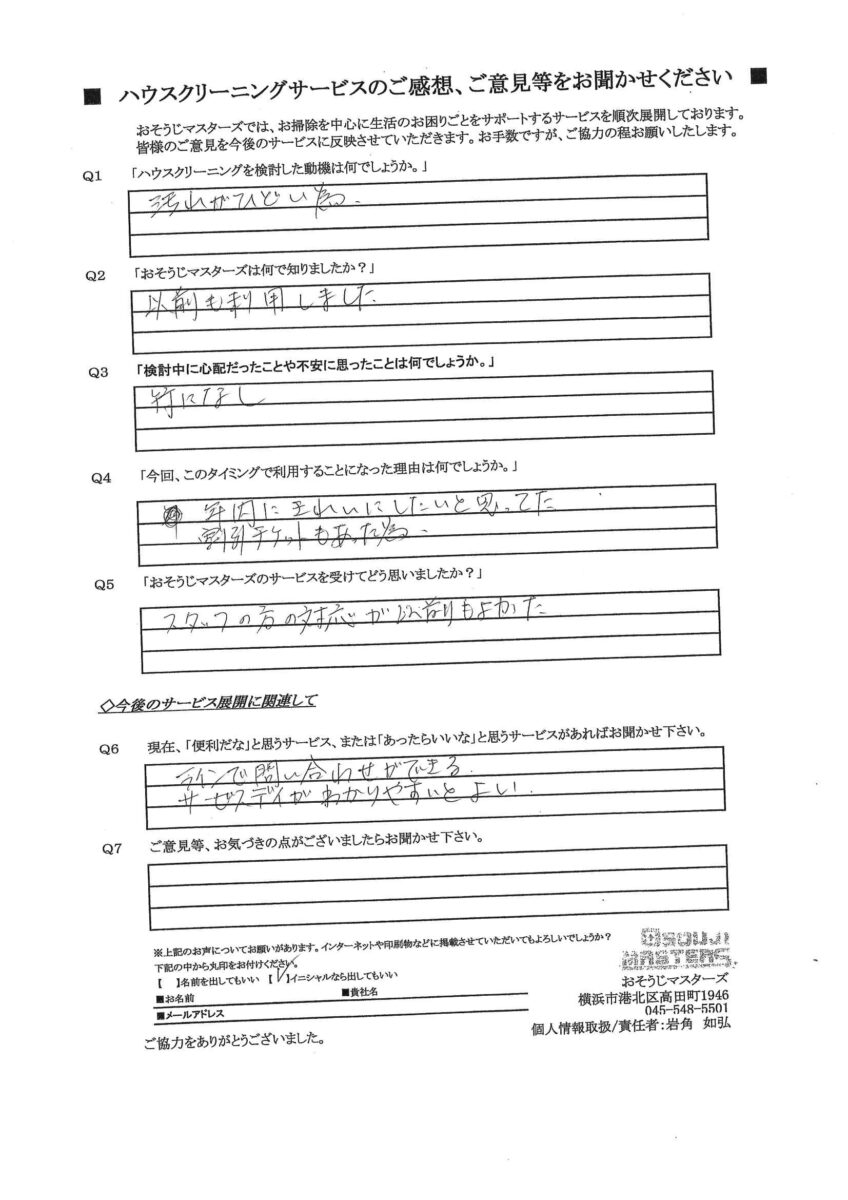 ■ ハウスクリーニングサービスのご感想、ご意見等をお聞かせください ■
おそうじマスターズでは、お掃除を中心に生活のお困りごとをサポートするサービスを順次展開しております。
皆様のご意見を今後のサービスに反映させていただきます。お手数ですが、ご協力の程お願いしたします。
Q1 「ハウスクリーニングを検討した動機は何でしょうか。」
汚れがひどい為.
Q2 「おそうじマスターズは何で知りましたか？」
以前も利用しました
Q3 「検討中に心配だったことや不安に思ったことは何でしょうか。」
特になし
Q4 「今回、このタイミングで利用することになった理由は何でしょうか。」
年内にきれいにしたいと思ってた
割引チケットもあった為.
Q5 「おそうじマスターズのサービスを受けてどう思いましたか？」
スタッフの方の対応が以前もよかった
◇今後のサービス展開に関連して
Q6 現在、「便利だな」と思うサービス、または「あったらいいな」と思うサービスがあればお聞かせ下さい。
ラインで問い合わせができる.
サービスデイがわかりやすいとよい.
Q7 ご意見等、お気づきの点がございましたらお聞かせ下さい。
※上記のお声についてお願いがあります。インターネットや印刷物などに掲載させていただいてもよろしいでしょうか？
下記の中から丸印をお付けください。
【　】名前を出してもいい 【✓】イニシャルなら出してもいい
■お名前 ■貴社名
■メールアドレス
ご協力をありがとうございました。
OSOUJI
MASTERS.
おそうじマスターズ
横浜市港北区高田町1946
045-548-5501
個人情報取扱/責任者：岩角 如弘